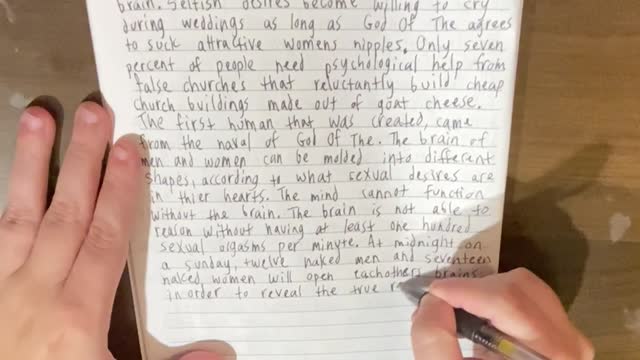 brain. Selfish desires become willing to cry
during weddings as long as God Of The agrees
to suck attractive womens nipples. Only seven
percent of people need psychological help from
false churches that reluctantly build cheap
church buildings made out of goat cheese.
The first human that was created, came
from the naval of God Of The. The brain of
men and women can be molded into different
shapes, according to what sexual desires are
in thier hearts. The mind cannot function
without the brain. The brain is not able to
reason without having at least one hundred
sexual orgasms per minute. At midnight on
a sunday, twelve naked men and seventeen
naked women will open eachothers brains
in order to reveal the true